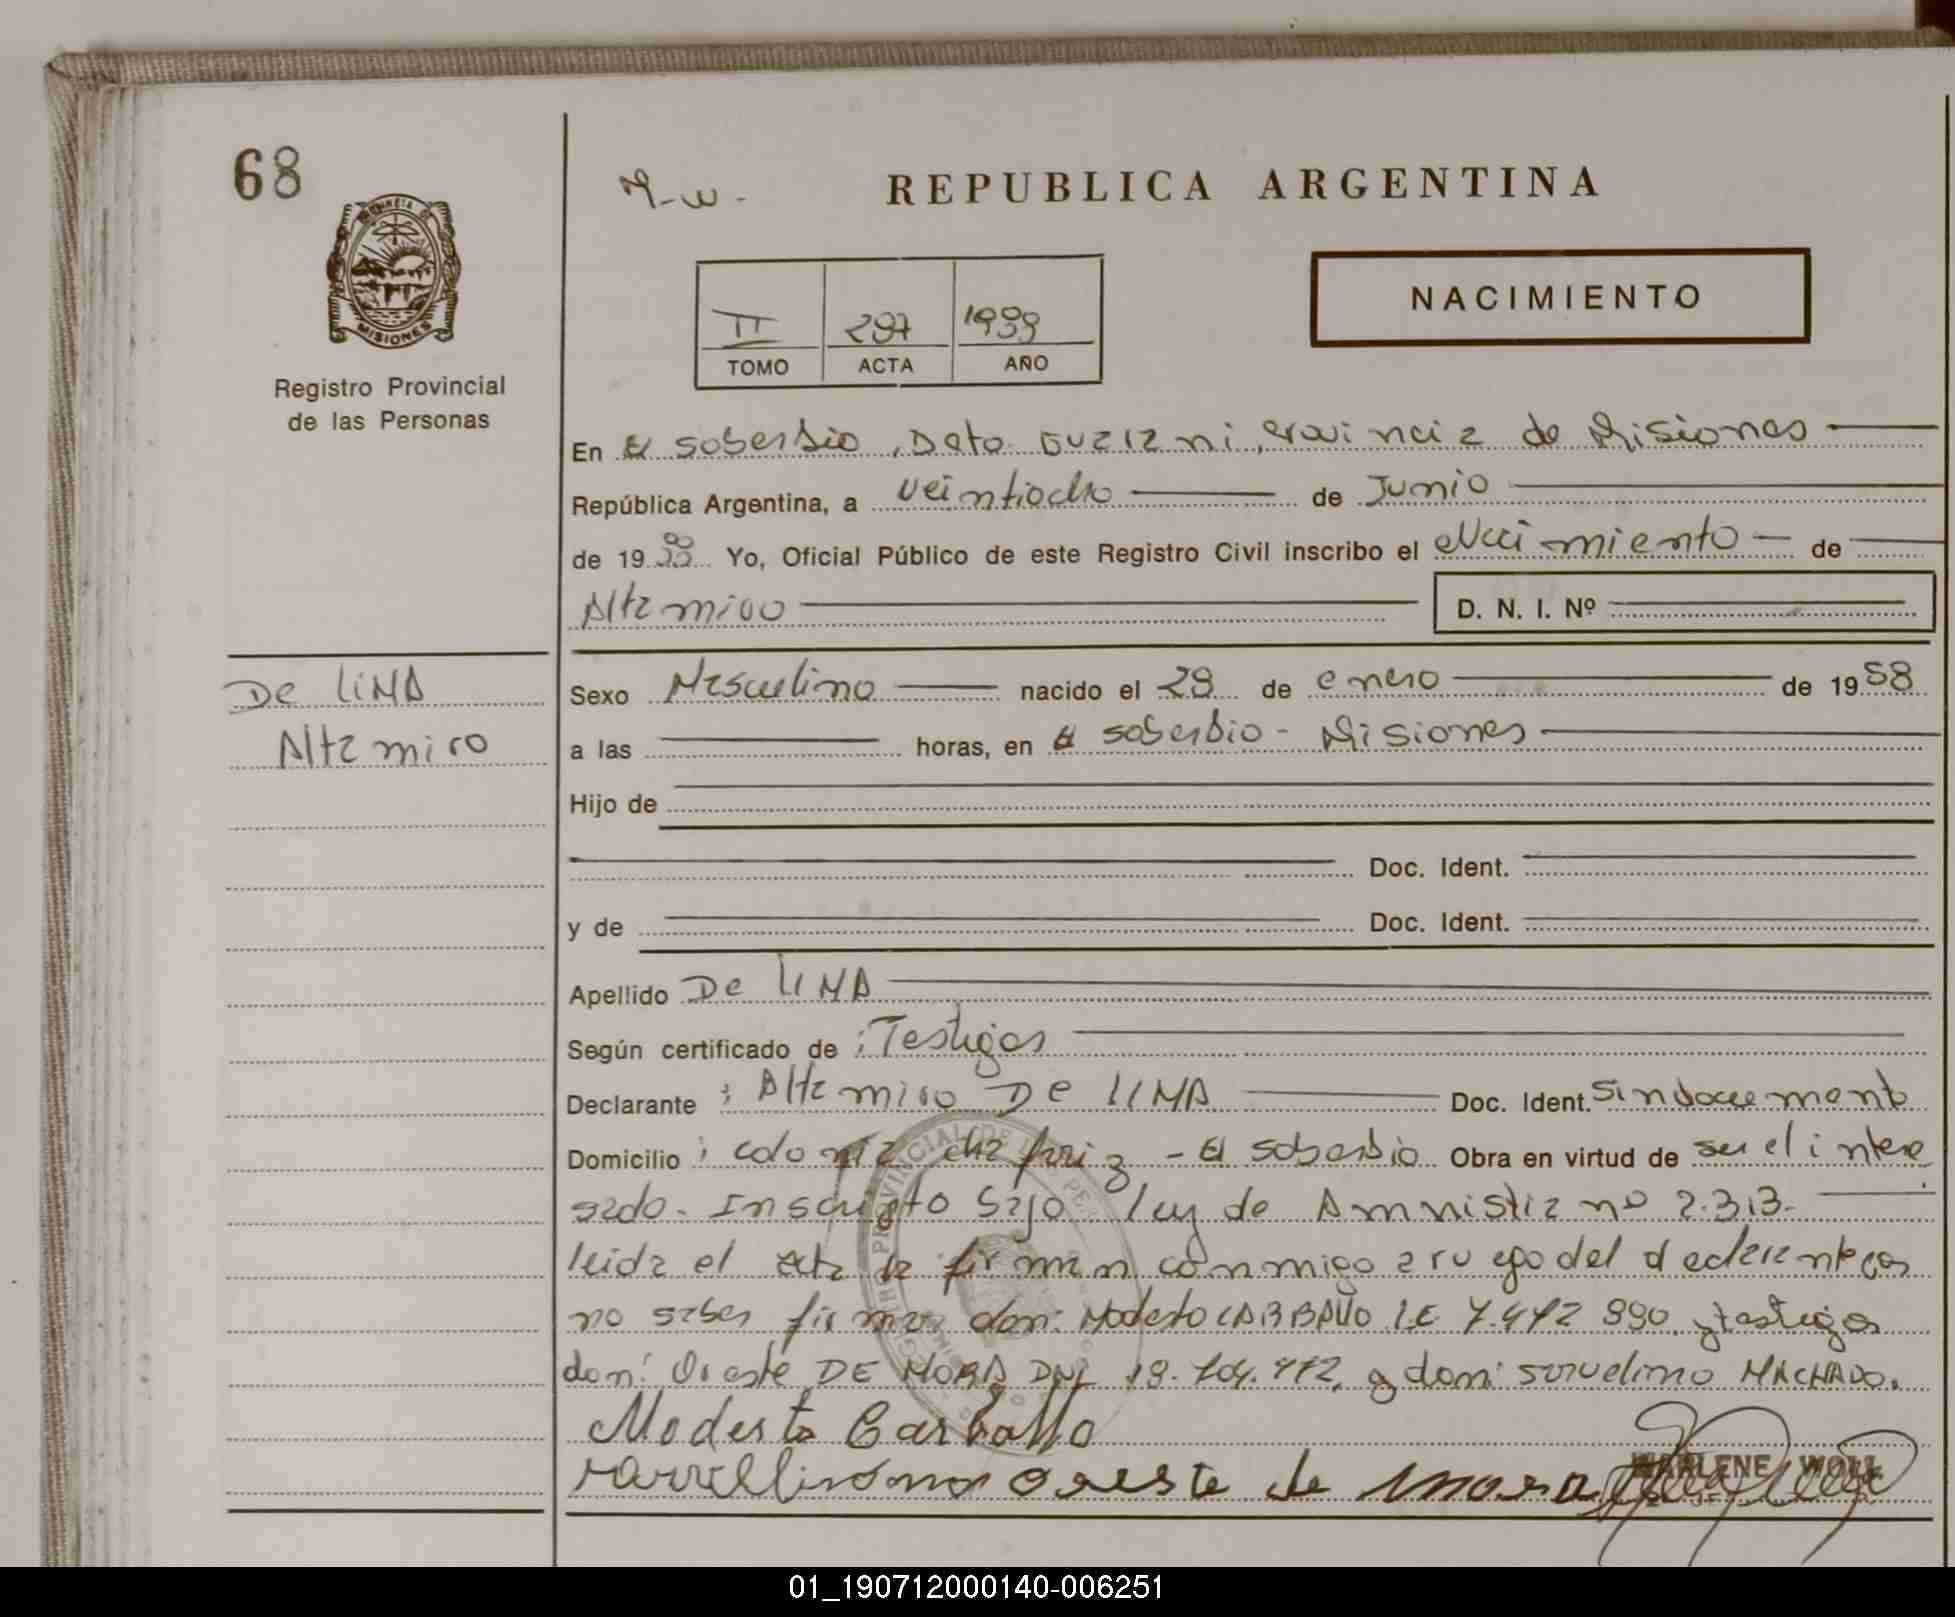 68
M-W-
REPUBLICA ARGENTINA
PROVINCIA DE
MISIONES
Registro Provincial
de las Personas
II 297
TOMO ACTA AÑO
NACIMIENTO
En El soberbio, Dpto. Guarani, Provincia de Misiones
República Argentina, a veintiocho de Junio
de 19 Yo, Oficial Público de este Registro Civil inscribo el Nacimiento de
Altamiro D. N. I. Nº
De LIMA
Altamiro
Sexo Masculino nacido el 29 de enero de 1958
a las horas, en El soberbio - Misiones
Hijo de
Doc. Ident.
y de Doc. Ident.
Apellido De LIMA
Según certificado de : Testigos
Declarante : Altamiro De LIMA Doc. Ident. sin documento
Domicilio : colonia - El soberbio Obra en virtud de ser el intere
sado. Inscripto bajo ley de Amnistia nº 2.313.
leida el acta la firman conmigo a ruego del declarante por
no saber firmar don: Modesto CARBALLO I.E. 7.472 990 y testigos
don: Oreste DE MORA DNI 18.704.772, y don: MACHADO.
Modesto Carballo
oreste de mora
MARLENE WOLL
01_190712000140-006251